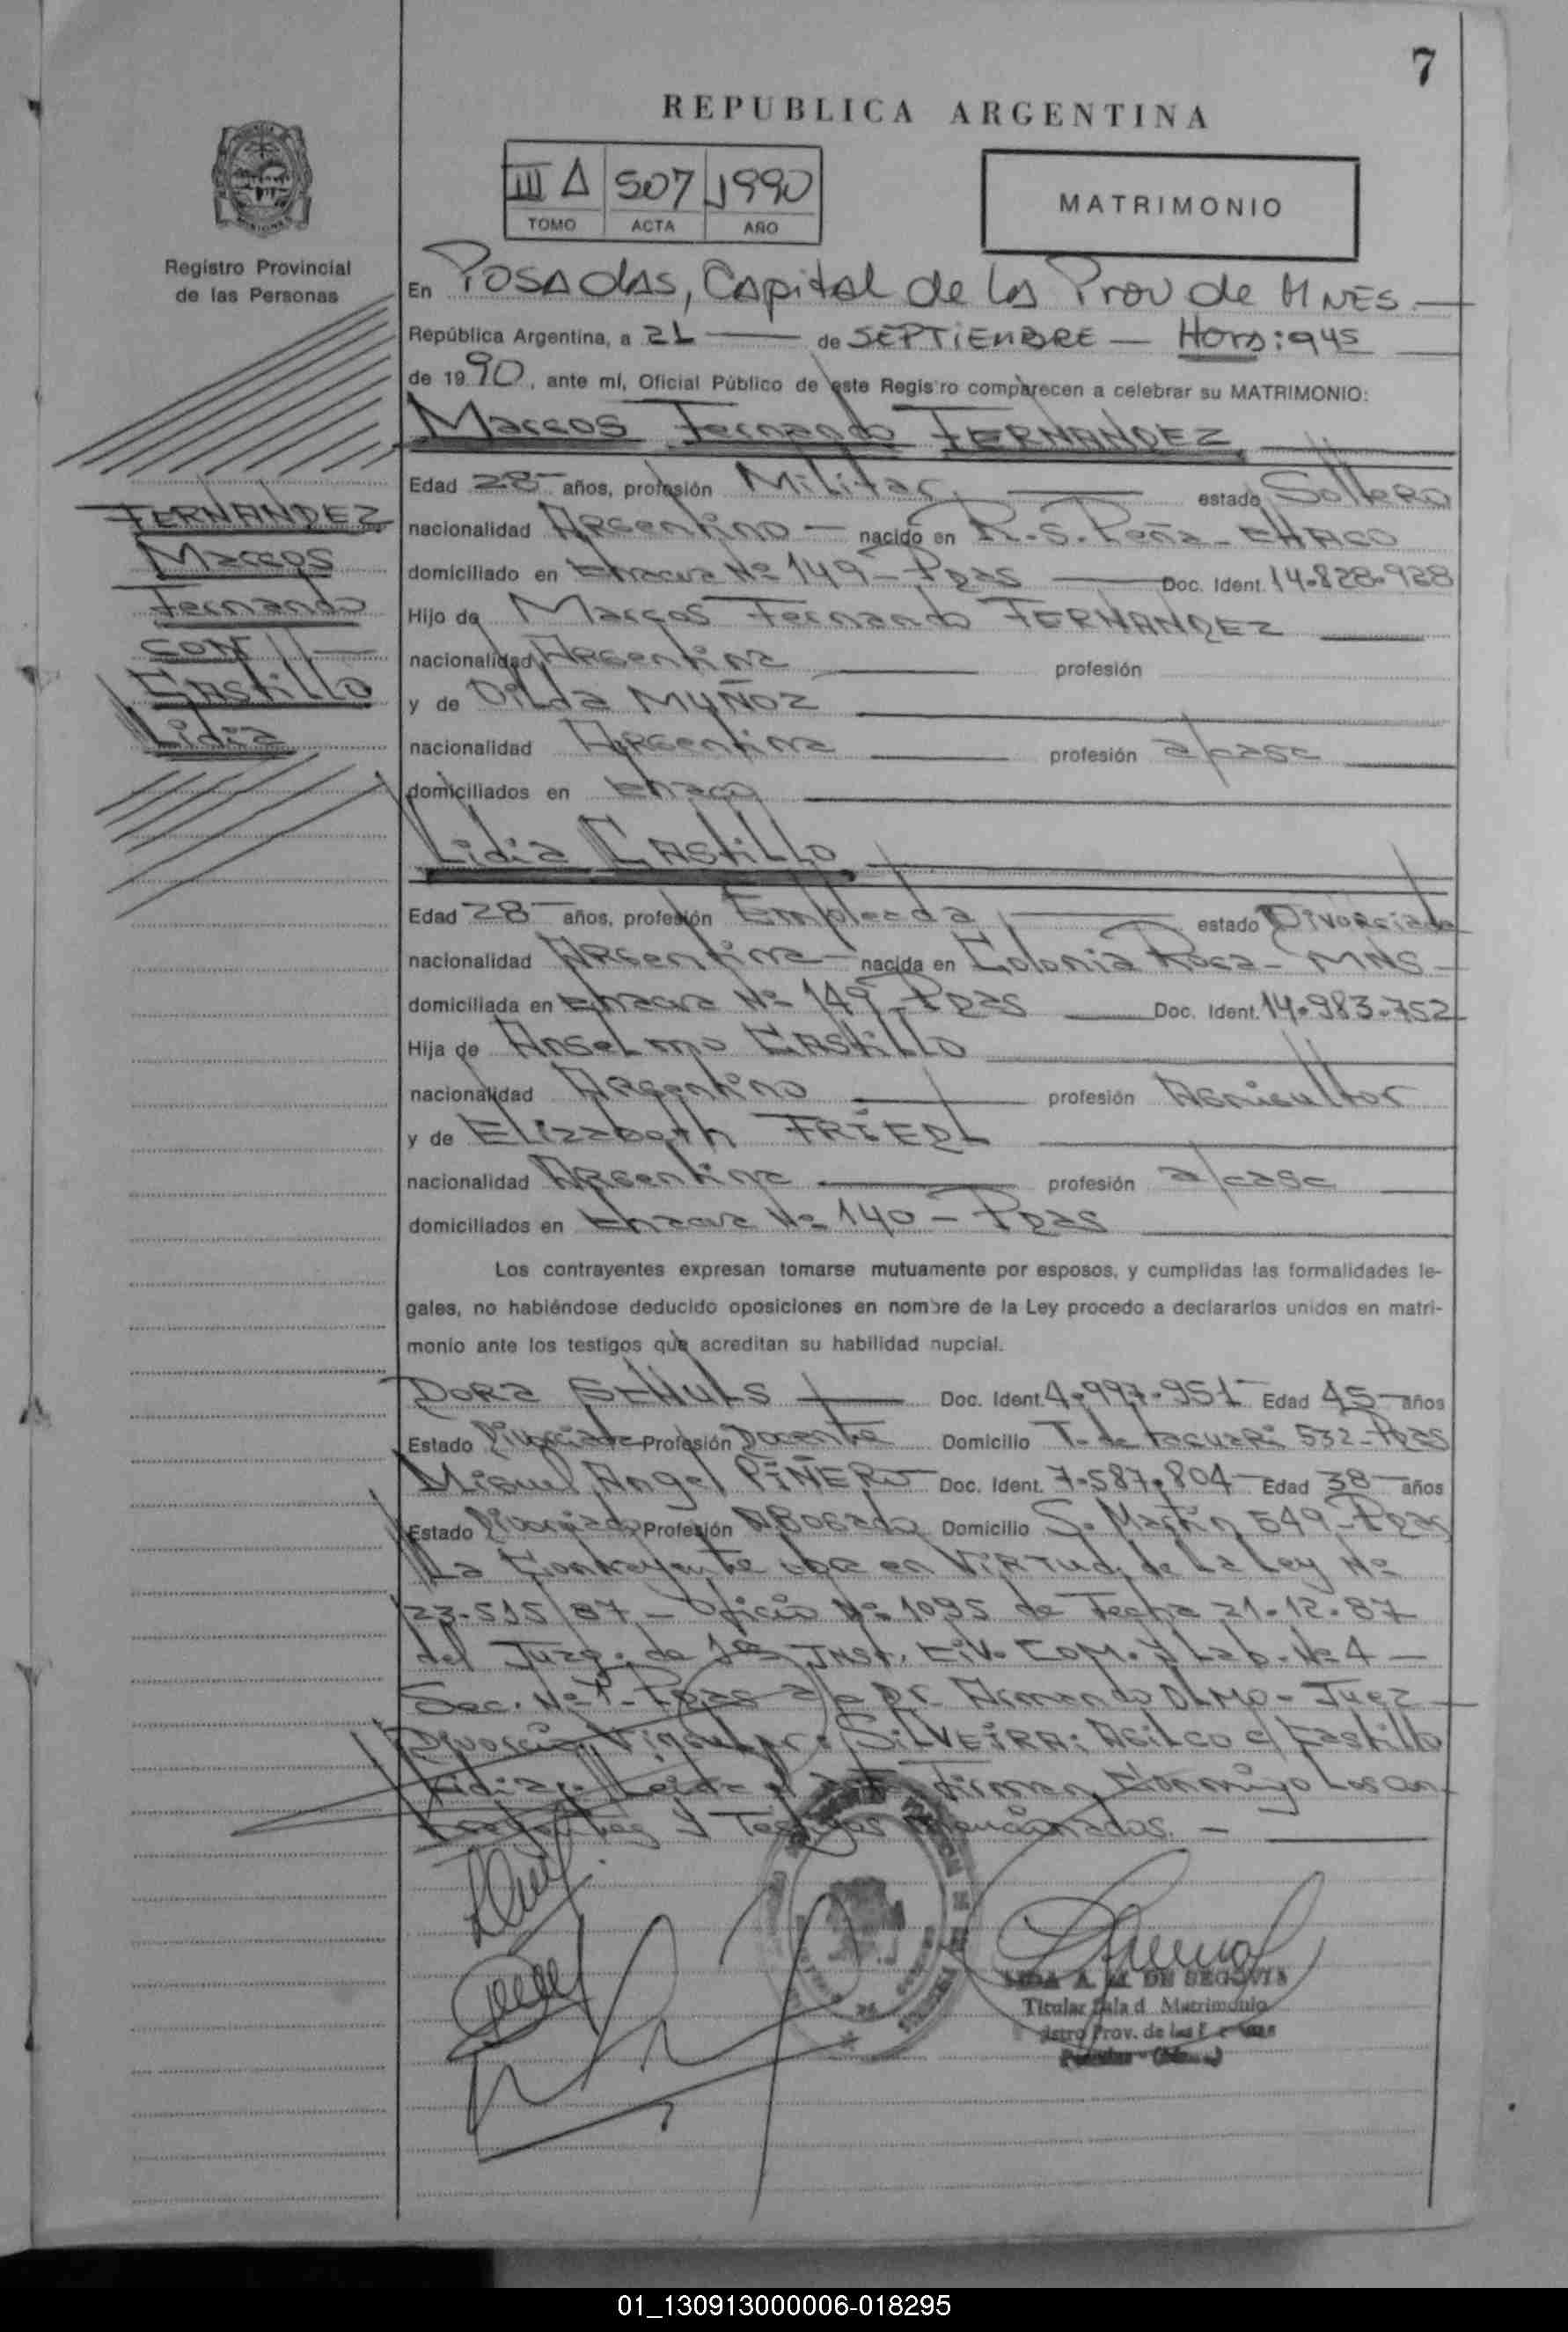 7
REPUBLICA ARGENTINA
III A 507 1990
TOMO ACTA AÑO
MATRIMONIO
Registro Provincial
de las Personas
En POSADAS, Capital de la Prov de MNES.
República Argentina, a 21 de SEPTIEMBRE Hora: 945
de 1990, ante mí, Oficial Público de este Registro comparecen a celebrar su MATRIMONIO:
Marcos Fernando FERNANDEZ
Edad 28 años, profesión Militar estado Soltero
nacionalidad Argentino nacido en R.S. Peña - CHACO
domiciliado en Chacra Nº 149 - Pdas Doc. Ident. 14.828.928
Hijo de Marcos Fernando FERNANDEZ
nacionalidad Argentina profesión
y de Dilda MUÑOZ
nacionalidad Argentina profesión a/casa
domiciliados en Chaco
FERNANDEZ
Marcos
Fernando
CON
Castillo
Lidia
Lidia CASTILLO
Edad 28 años, profesión Empleada estado Divorciada
nacionalidad Argentina nacida en Colonia Roca - MNS
domiciliada en Chacra Nº 149 - Pdas Doc. Ident. 14.983.752
Hija de Anselmo CASTILLO
nacionalidad Argentino profesión Agricultor
y de Elizabeth FRIEDL
nacionalidad Argentina profesión a/casa
domiciliados en Chacra Nº 140 - Pdas
Los contrayentes expresan tomarse mutuamente por esposos, y cumplidas las formalidades le-
gales, no habiéndose deducido oposiciones en nombre de la Ley procedo a declararlos unidos en matri-
monio ante los testigos que acreditan su habilidad nupcial.
DORA Doc. Ident. 4.997.951 Edad 45 años
Estado Divorciada Profesión Docente Domicilio T. de Tacuari 532 - Pdas
Miguel Angel PIÑERO Doc. Ident. 7.587.804 Edad 38 años
Estado Divorciado Profesión Abogado Domicilio S. Martin 549 - Pdas
La Contrayente en VIRTUD de La Ley Nº
23.515/87 - Oficio Nº 1095 de Fecha 21.12.87
del Juzg. de 1ra INST. CIV. COM. y Lab. Nº 4 -
Sec. Nº 1 - Pdas a/c Dr. Armando OLMO - Juez
Divorcio Vincular: SILVEIRA; Acilco c/ Castillo
Lidia. Leida el acta Firman Conmigo Los con-
trayentes y Testigos mencionados. -
LIDA A. M. DE SEGOVIA
Titular Sala d Matrimonio
istro Prov. de las
01_130913000006-018295